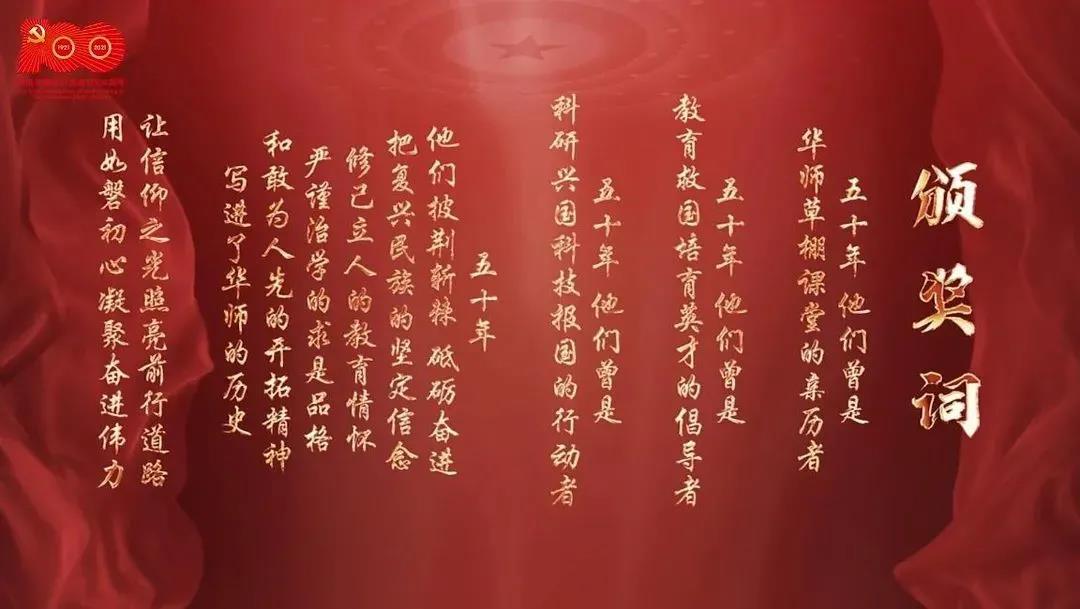 颁奖词
五十年 他们曾是
华师草棚课堂的亲历者
五十年 他们曾是
教育救国培育英才的倡导者
五十年 他们曾是
科研兴国科技报国的行动者
五十年
他们披荆斩棘 砥砺奋进
把复兴民族的坚定信念
修己立人的教育情怀
严谨治学的求是品格
和敢为人先的开拓精神
写进了华师的历史
让信仰之光照亮前行道路
用如磐初心凝聚奋进伟力
1921
2021